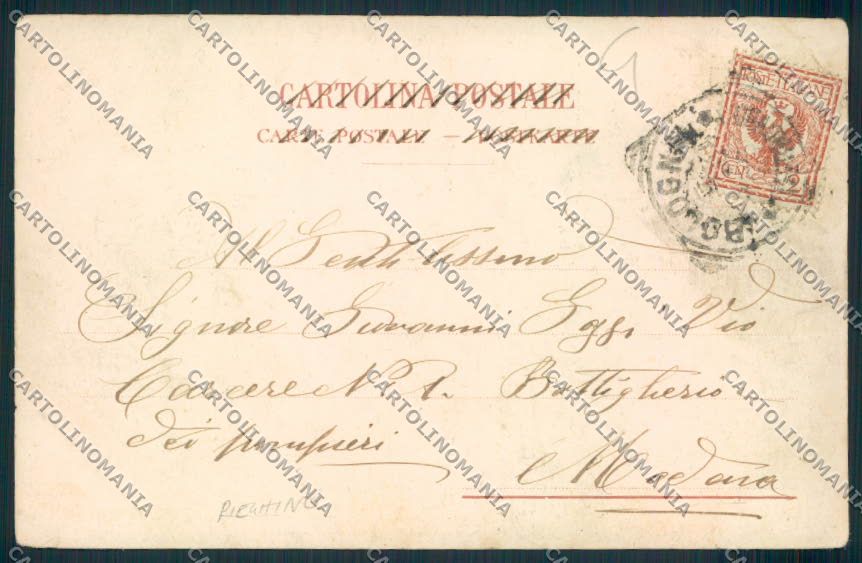 CARTOLINA POSTALE
CARTE POSTALE — POSTKARTE
POSTE ITALIANE
CENT. 2
BOLOGNA
Al Gentilissimo
Signore Giovanni Via
Carcere N 1. Battiglierio
dei pompieri
Modena
CARTOLINOMANIA